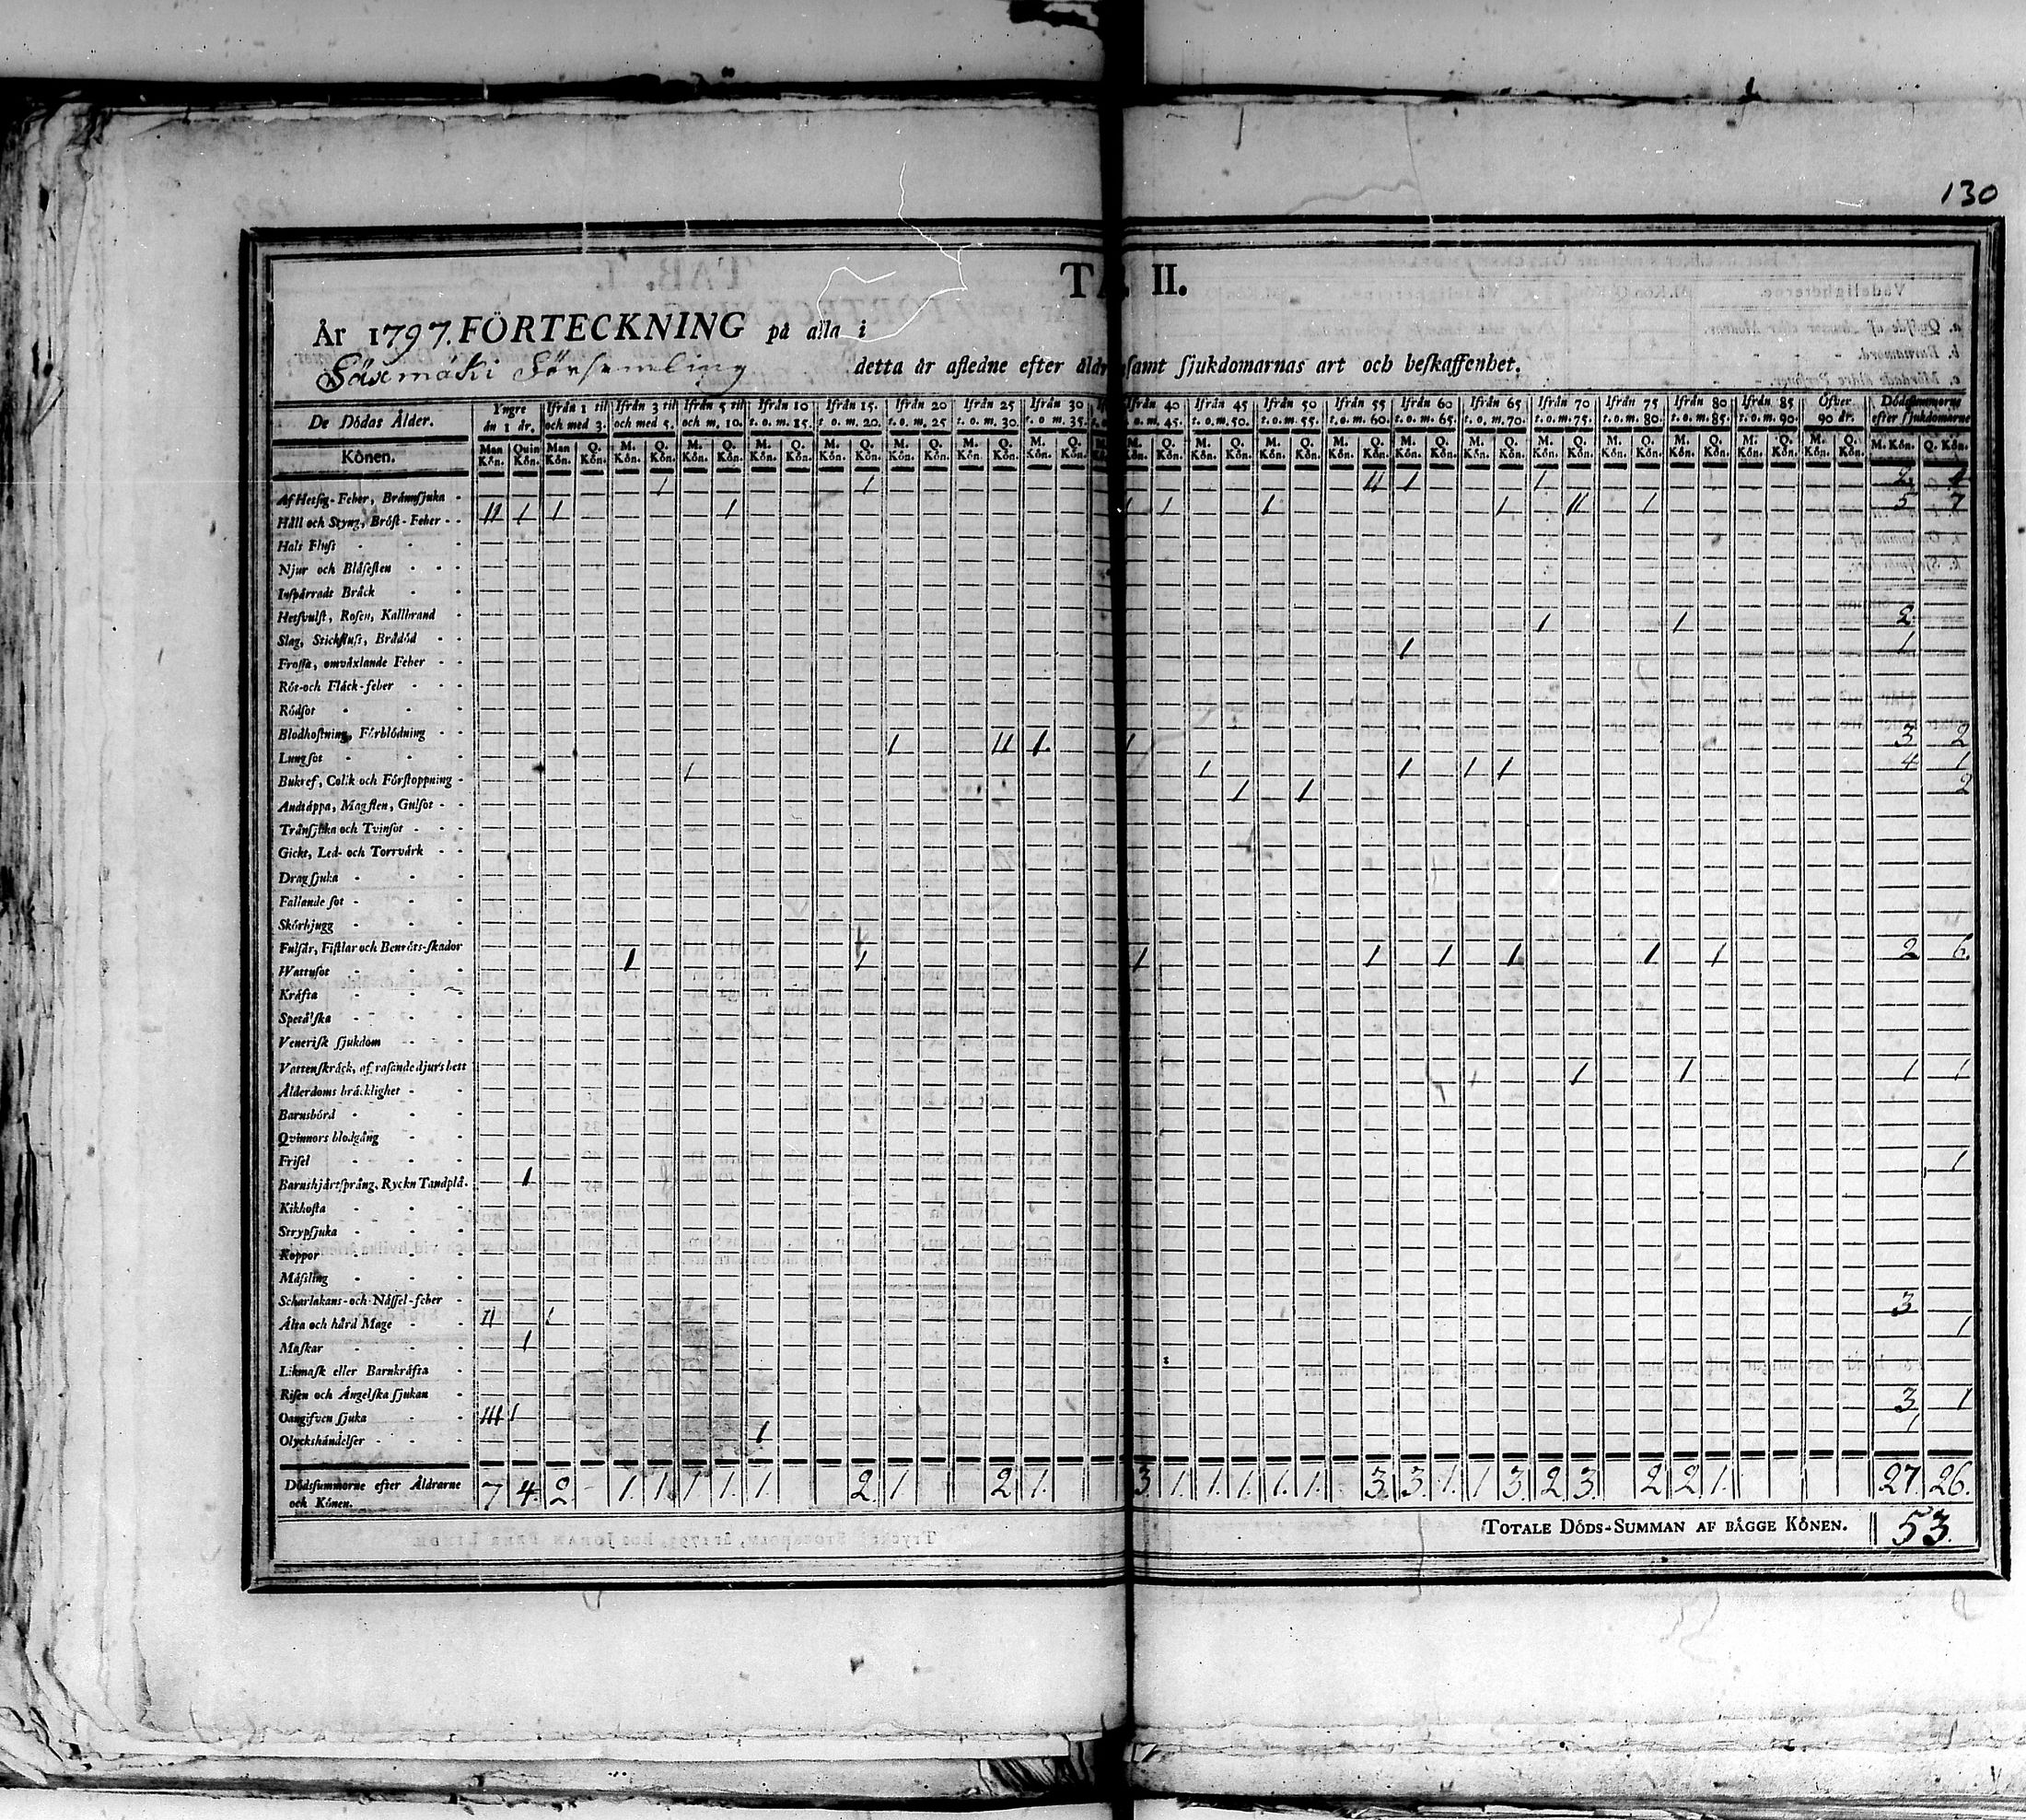 130
TA II.
År 1797. FÖRTECKNING på alla i
Säxmäki Församling detta år afledne efter åldr samt sjukdomarnas art och beskaffenhet.
De Dödas Ålder. Yngre än 1 år. Ifrån 1 til och med 3. Ifrån 3 til och med 5. Ifrån 5 til och m. 10. Ifrån 10 t. o. m. 15. Ifrån 15. t. o. m. 20. Ifrån 20 t. o. m. 25 Ifrån 25 t. o. m. 30. Ifrån 30 t. o. m. 35. Ifrån 40 t. o. m. 45. Ifrån 45 t. o. m. 50. Ifrån 50 t. o. m. 55. Ifrån 55 t. o. m. 60. Ifrån 60 t. o. m. 65. Ifrån 65 t. o. m. 70. Ifrån 70 t. o. m. 75. Ifrån 75 t. o. m. 80. Ifrån 80 t. o. m. 85. Ifrån 85 t. o. m. 90. Öfver 90 år. Dödssummorne efter sjukdomarne
Könen. Man Kön. Quin Kön. Man Kön. Q. Kön. M. Kön. Q. Kön. M. Kön. Q. Kön. M. Kön. Q. Kön. M. Kön. Q. Kön. M. Kön. Q. Kön. M. Kön. Q. Kön. M. Kön. Q. Kön. M. Kön. Q. Kön. M. Kön. Q. Kön. M. Kön. Q. Kön. M. Kön. Q. Kön. M. Kön. Q. Kön. M. Kön. Q. Kön. M. Kön. Q. Kön. M. Kön. Q. Kön. M. Kön. Q. Kön. M. Kön. Q. Kön. M. Kön. Q. Kön.
Af Hetsig-Feber, Brännsjuka 1 1 11 1 1 2 4
Håll och Styng, Bröst-Feber 11 1 1 1 1 1 1 1 11 1 5 7
Hals Fluss
Njur och Blåsesten
Inspärradt Bråck
Hetsvulst, Rosen, Kallbrand
Slag, Stickfluss, Brådöd 1 1 2
Frossa, omväxlande Feber 1 1
Röt-och Fläck-feber
Rödsot
Blodhostning, Förblödning
Lungsot 1 11 1 1 3 2
Bukref, Colik och Förstoppning 1 1 1 1 1 4 1
Andtäppa, Magsten, Gulsot 1 1 2
Trånsjuka och Tvinsot
Gickt, Led- och Torrvärk
Dragsjuka
Fallande sot
Skörbjugg
Fulsår, Fistlar och Benröts-skador
Wattusot 1 1 1 1 1 1 1 1 2 6
Kräfta
Spetälska
Venerisk sjukdom
Vattenskräck, af rasande djurs bett
Ålderdoms bräcklighet 1 1 1 1
Barnsbörd
Qvinnors blodgång
Frisel
Barnshjärtsprång, Ryckn Tandplå. 1 1
Kikhosta
Strypsjuka
Koppor
Mässling
Scharlakans-och Nässel-feber
Älta och hård Mage 11 1 3
Maskar 1 1
Likmask eller Barnkräfta
Risen och Ängelska sjukan
Oangifven sjuka 111 1 3 1
Olyckshändelser 1 1
Dödssummorne efter Åldrarne och Könen. 7 4. 2 1. 1 1 1. 1. 2. 1 2. 1. 3. 1. 1. 1. 1. 1. 3. 3. 1. 1 3. 2 3. 2 2. 1. 27. 26.
TOTALE DÖDS-SUMMAN AF BÅGGE KÖNEN. 53.